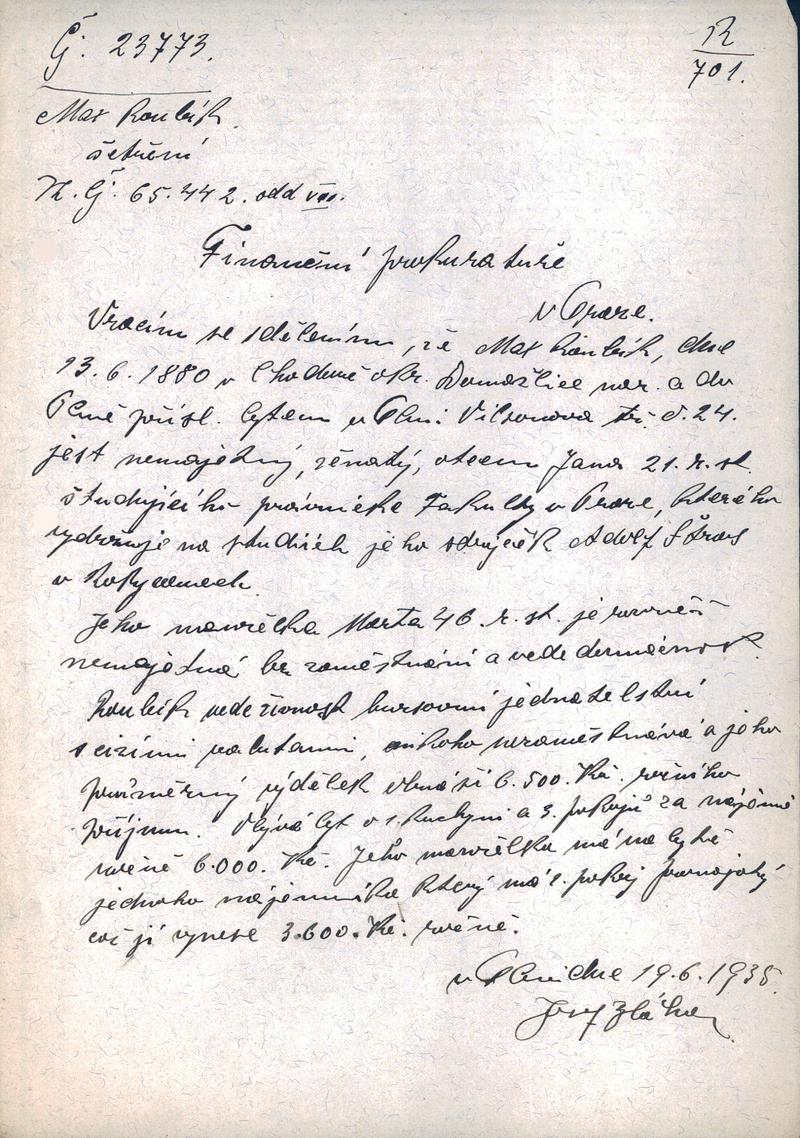 Č: 23773.
R
701.
Max Roubík
šetření
K. Č: 65.442. odd VIII.
Finanční prokuratuře
v Praze.
Vracím se sdělením, že Max Roubík, dne
13.6.1880 v Chodové okr. Domažlice nar. a do
Plzně přísl. bytem v Plzni Vilsonova tř. č. 24.
jest nemajetný, ženatý, otcem Jana 21. r. st.
študujícího právnické Fakulty v Praze, kterého
vydržuje na studiích jeho strýček Adolf Štros
v Rokycanech.
Jeho manželka Marta 46. r. st. je rovněž
nemajetná bez zaměstnání a vede domácnost.
Roubík vede živnost bursovní jednatelství
s cizími valutami, nikoho nezaměstnává a jeho
průměrný výdělek obnáší 6.500. Kč. ročního
příjmu. Obývá byt o 1. kuchyni a 3. pokojů za nájemné
ročně 6.000. Kč. Jeho manželka má na bytě
jednoho nájemníka který má 1. pokoj pronajatý
což jí vynese 3.600. Kč. ročně.
v Plzni dne 19.6.1935.
Josef